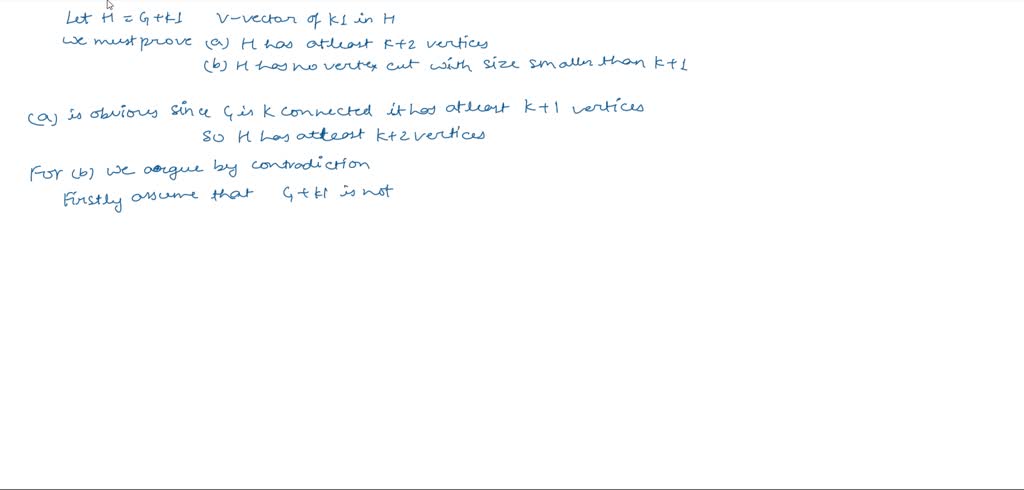 Let H = G+K1 V-vector of K1 in H
we must prove (a) H has atleast K+2 vertices
(b) H has no vertex cut with size smaller than K+1
(a) is obvious since G is K connected it has atleast K+1 vertices
So H has atleast K+2 vertices
For (b) we argue by contradiction
Firstly assume that G+K1 is not